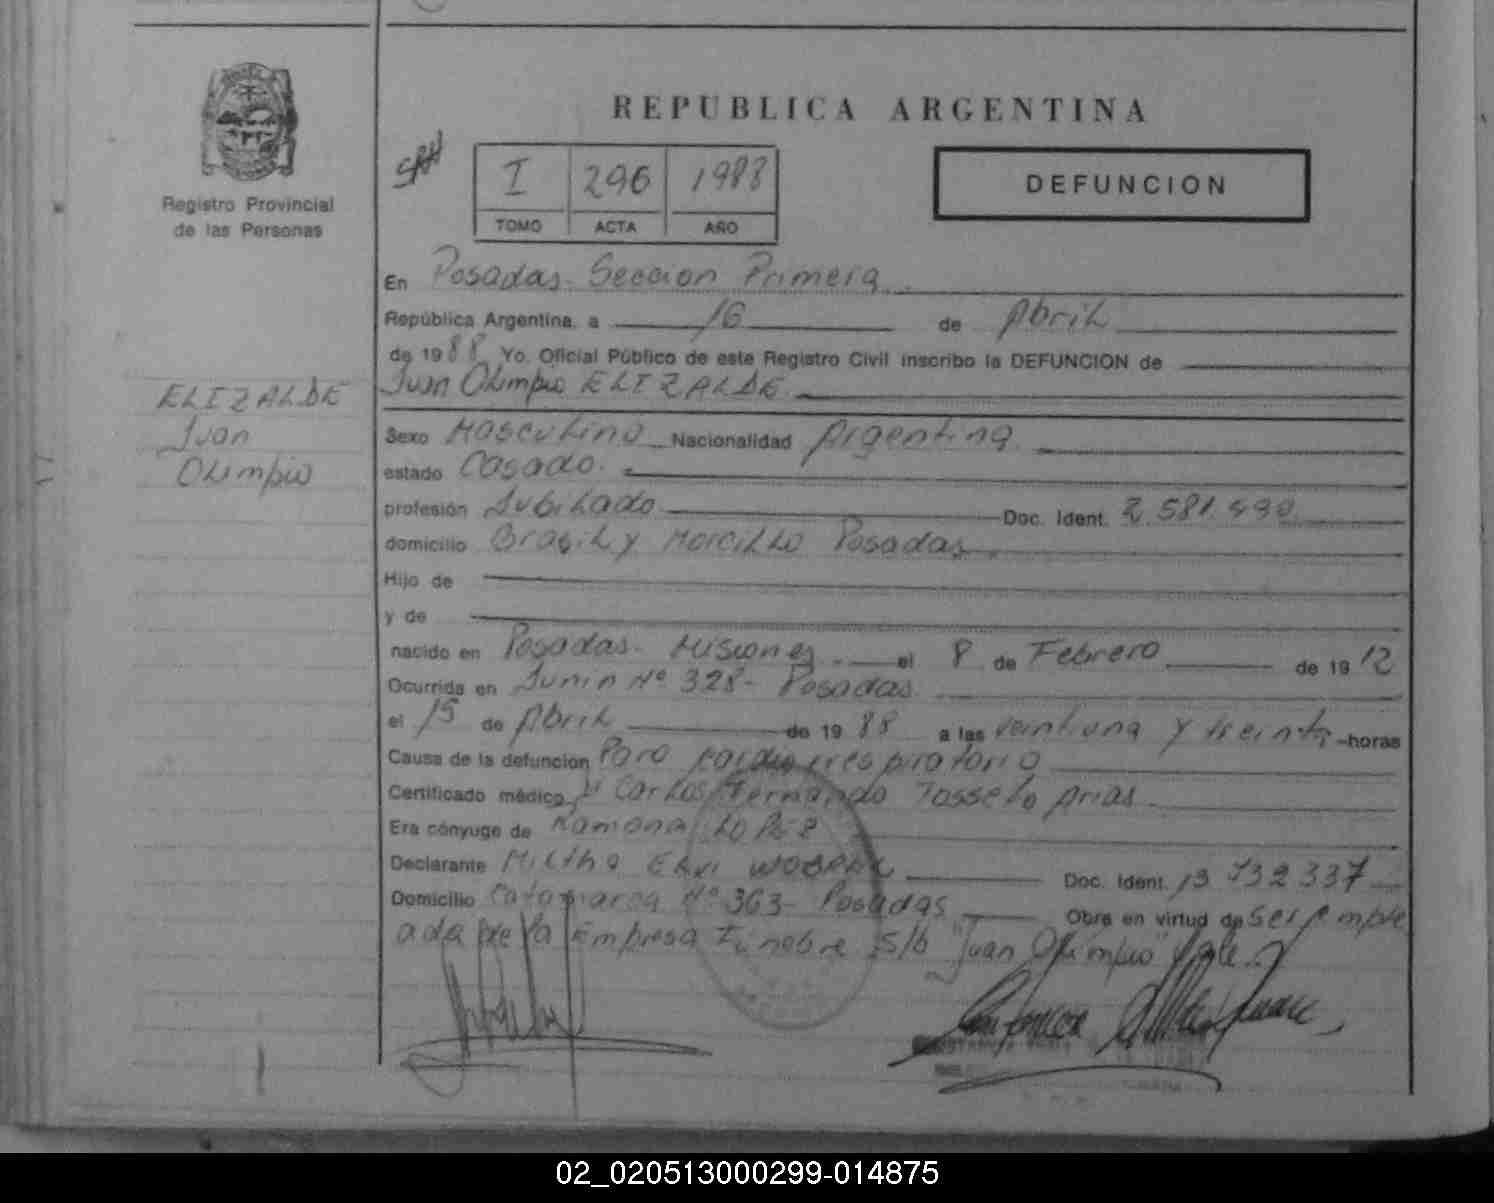 REPUBLICA ARGENTINA
I 296 1988
TOMO ACTA AÑO
DEFUNCION
Registro Provincial
de las Personas
En Posadas. Seccion Primera
República Argentina, a 16 de Abril
de 1988 Yo. Oficial Público de este Registro Civil inscribo la DEFUNCION de
Juan Olimpio ELIZALDE
ELIZALDE
Juan
Olimpio
Sexo Masculino Nacionalidad Argentina
estado Casado.
profesión Jubilado Doc. Ident. 2.581.490
domicilio Brasil y Morcillo Posadas
Hijo de
y de
nacido en Posadas - Misiones el 8 de Febrero de 1912
Ocurrida en Junin Nº 328 - Posadas
el 15 de Abril de 1988 a las veintiuna y treinta horas
Causa de la defuncion Paro cardiorrespiratorio
Certificado médico Dr Carlos Fernando Arias
Era cónyuge de Ramona LOPEZ
Declarante Doc. Ident. 13 732 337
Domicilio Catamarca Nº 363 - Posadas Obra en virtud de ser emple
ada de la Empresa Fúnebre S/b "Juan Olimpio" Vale.
02_020513000299-014875